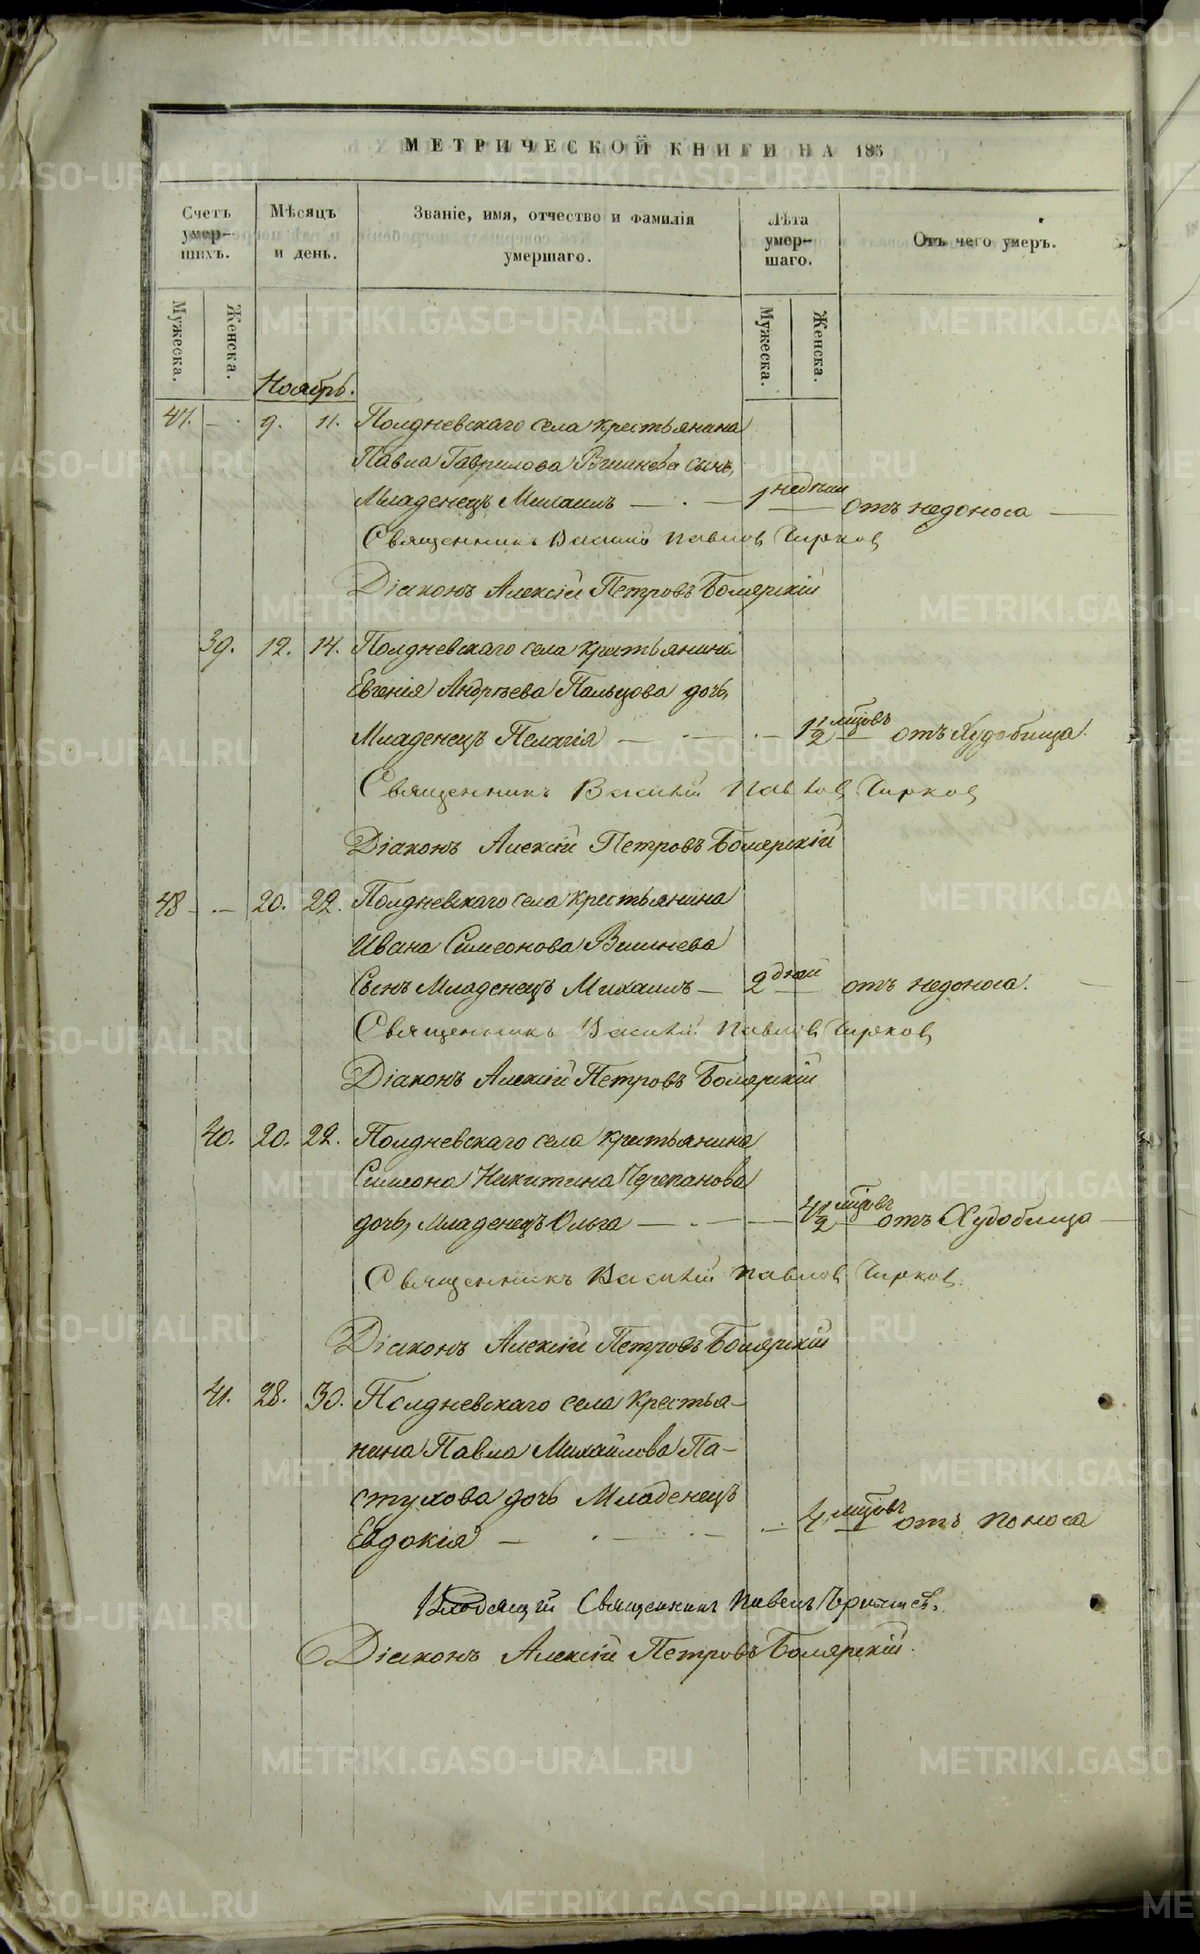 МЕТРИЧЕСКОЙ КНИГИ НА 185
Счетъ умер-шихъ.
Мѣсяцъ и день.
Званіе, имя, отчество и фамилія умершаго.
Лѣта умер-шаго.
Отъ чего умеръ.
Мужеска. Женска. Мужеска. Женска.
Ноябрь.
47. 9. 11. Полдневскаго села крестьянина
Павла Гаврилова Вишнева сынъ,
Младенецъ Михаилъ 1 недѣли отъ недоноса
Священникъ Василій Павловъ Чирковъ
Діаконъ Алексій Петровъ Боярскій
39. 12. 14. Полдневскаго села крестьянина
Евгенія Андрѣева Пальцова дочь,
Младенецъ Пелагія 1 1/2 мцовъ отъ Худобища.
Священникъ Василій Павловъ Чирковъ
Діаконъ Алексій Петровъ Боярскій
48 20. 22. Полдневскаго села крестьянина
Ивана Симеонова Вишнева
Сынъ Младенецъ Михаилъ 2 дней отъ недоноса.
Священникъ Василій Павловъ Чирковъ
Діаконъ Алексій Петровъ Боярскій
40. 20. 22. Полдневскаго села крестьянина
Симеона Никитина Черепанова
дочь, Младенецъ Ольга 4 1/2 мцовъ отъ Худобища
Священникъ Василій Павловъ Чирковъ.
Діаконъ Алексій Петровъ Боярскій
41. 28. 30. Полдневскаго села Крестья-
нина Павла Михайлова Па-
стухова дочь Младенецъ
Евдокія 4 мцовъ отъ поноса
Священникъ Павелъ
Діаконъ Алексій Петровъ Боярскій.
METRIKI.GASO-URAL.RU